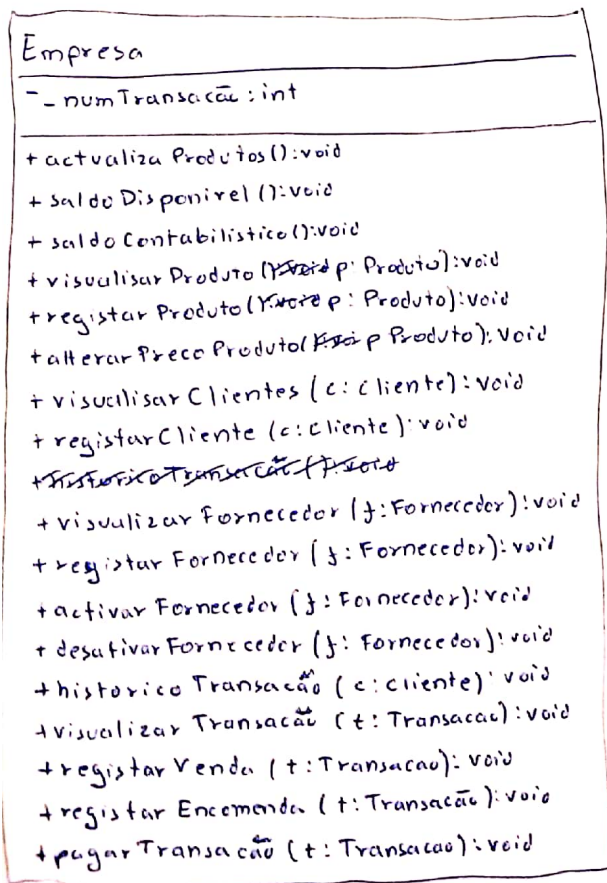 Empresa
- - numTransacão : int
+ actualiza Produtos():void
+ saldo Disponivel ():void
+ saldo Contabilistico():void
+ visualisar Produto (p: Produto):void
+ registar Produto( p: Produto):void
+ alterar Preco Produto( p Produto): void
+ visualisar Clientes (c: cliente): void
+ registar Cliente (c: cliente): void
+ historico Transaccão (): void
+ visualizar Fornecedor (f: Fornecedor): void
+ registar Fornecedor (f: Fornecedor): void
+ activar Fornecedor (f: Fornecedor): void
+ desativar Fornecedor (f: Fornecedor): void
+ historico Transacão (c: cliente): void
+ visualizar Transacão (t: Transacao): void
+ registar Venda (t: Transacao): void
+ registar Encomenda (t: Transacão): void
+ pagar Transacão (t: Transacao): void